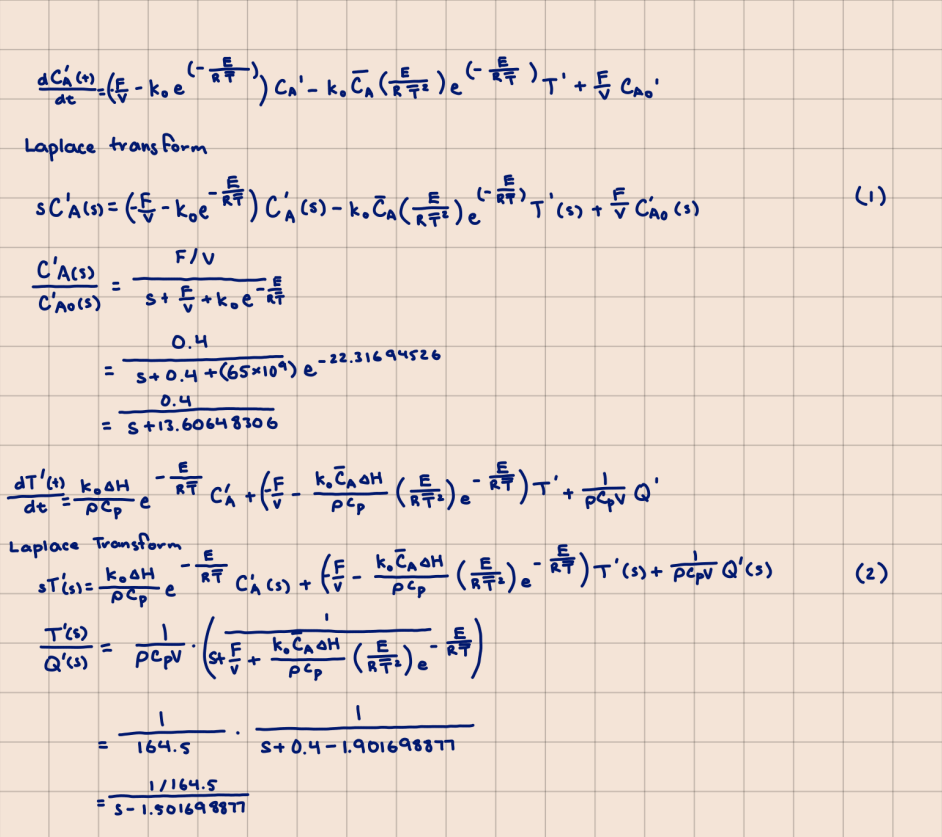 dC_A'(t)/dt = (-F/V - k₀e^(-E/RT̅)) C_A' - k₀C̅_A(E/RT̅²)e^(-E/RT̅) T' + F/V C_A0'
Laplace transform
sC'A(s) = (-F/V - k₀e^-E/RT̅) C'_A(s) - k₀C̅_A(E/RT̅²)e^(-E/RT̅) T'(s) + F/V C'_A0(s) (1)
C'A(s)/C'A0(s) = F/V / s + F/V + k₀e^-E/RT̅
= 0.4 / s + 0.4 + (65×10⁹)e^-22.31694526
= 0.4 / s + 13.60648306
dT'(t)/dt = k₀ΔH/ρCp e^-E/RT̅ C'_A + (-F/V - k₀C̅_AΔH/ρCp (E/RT̅²)e^-E/RT̅) T' + 1/ρCpV Q'
Laplace Transform
sT'(s) = k₀ΔH/ρCp e^-E/RT̅ C'_A(s) + (-F/V - k₀C̅_AΔH/ρCp (E/RT̅²)e^-E/RT̅) T'(s) + 1/ρCpV Q'(s) (2)
T'(s)/Q'(s) = 1/ρCpV · (1 / s + F/V + k₀C̅_AΔH/ρCp (E/RT̅²)e^-E/RT̅)
= 1/164.5 · 1 / s + 0.4 - 1.901698877
= 1/164.5 / s - 1.501698877